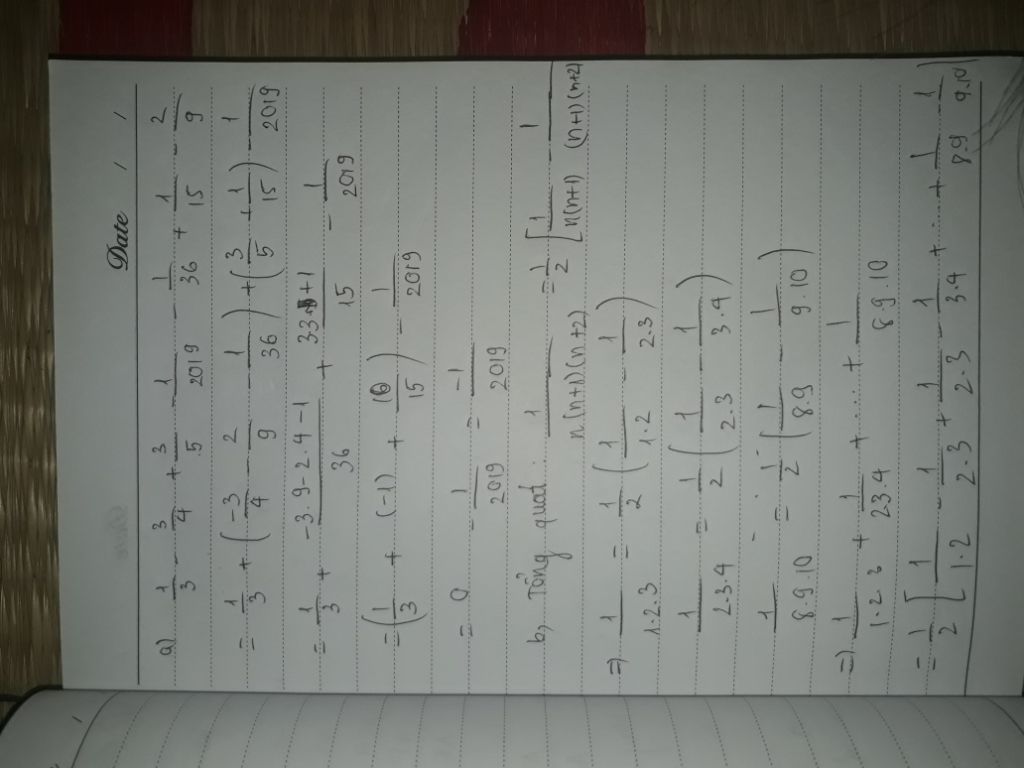 Date / /
a) 1/3 - 3/4 + 3/5 - 1/2019 - 1/36 + 1/15 - 2/9
= 1/3 + (-3/4 - 2/9 - 1/36) + (3/5 + 1/15) - 1/2019
= 1/3 + (-3.9-2.4-1)/36 + (3.3+1)/15 - 1/2019
= (1/3 + (-1) + 10/15) - 1/2019
= 0 - 1/2019 = -1/2019
b, Tổng quát: 1/n(n+1)(n+2) = 1/2 [1/n(n+1) - 1/(n+1)(n+2)
=) 1/1.2.3 = 1/2 (1/1.2 - 1/2.3)
1/2.3.4 = 1/2 (1/2.3 - 1/3.4)
1/8.9.10 = 1/2 (1/8.9 - 1/9.10)
=) 1/1.2.3 + 1/23.4 + ..... + 1/8.9.10
= 1/2 [1/1.2 - 1/2.3 + 1/2.3 - 1/3.4 + ... + 1/8.9 - 1/9.10]